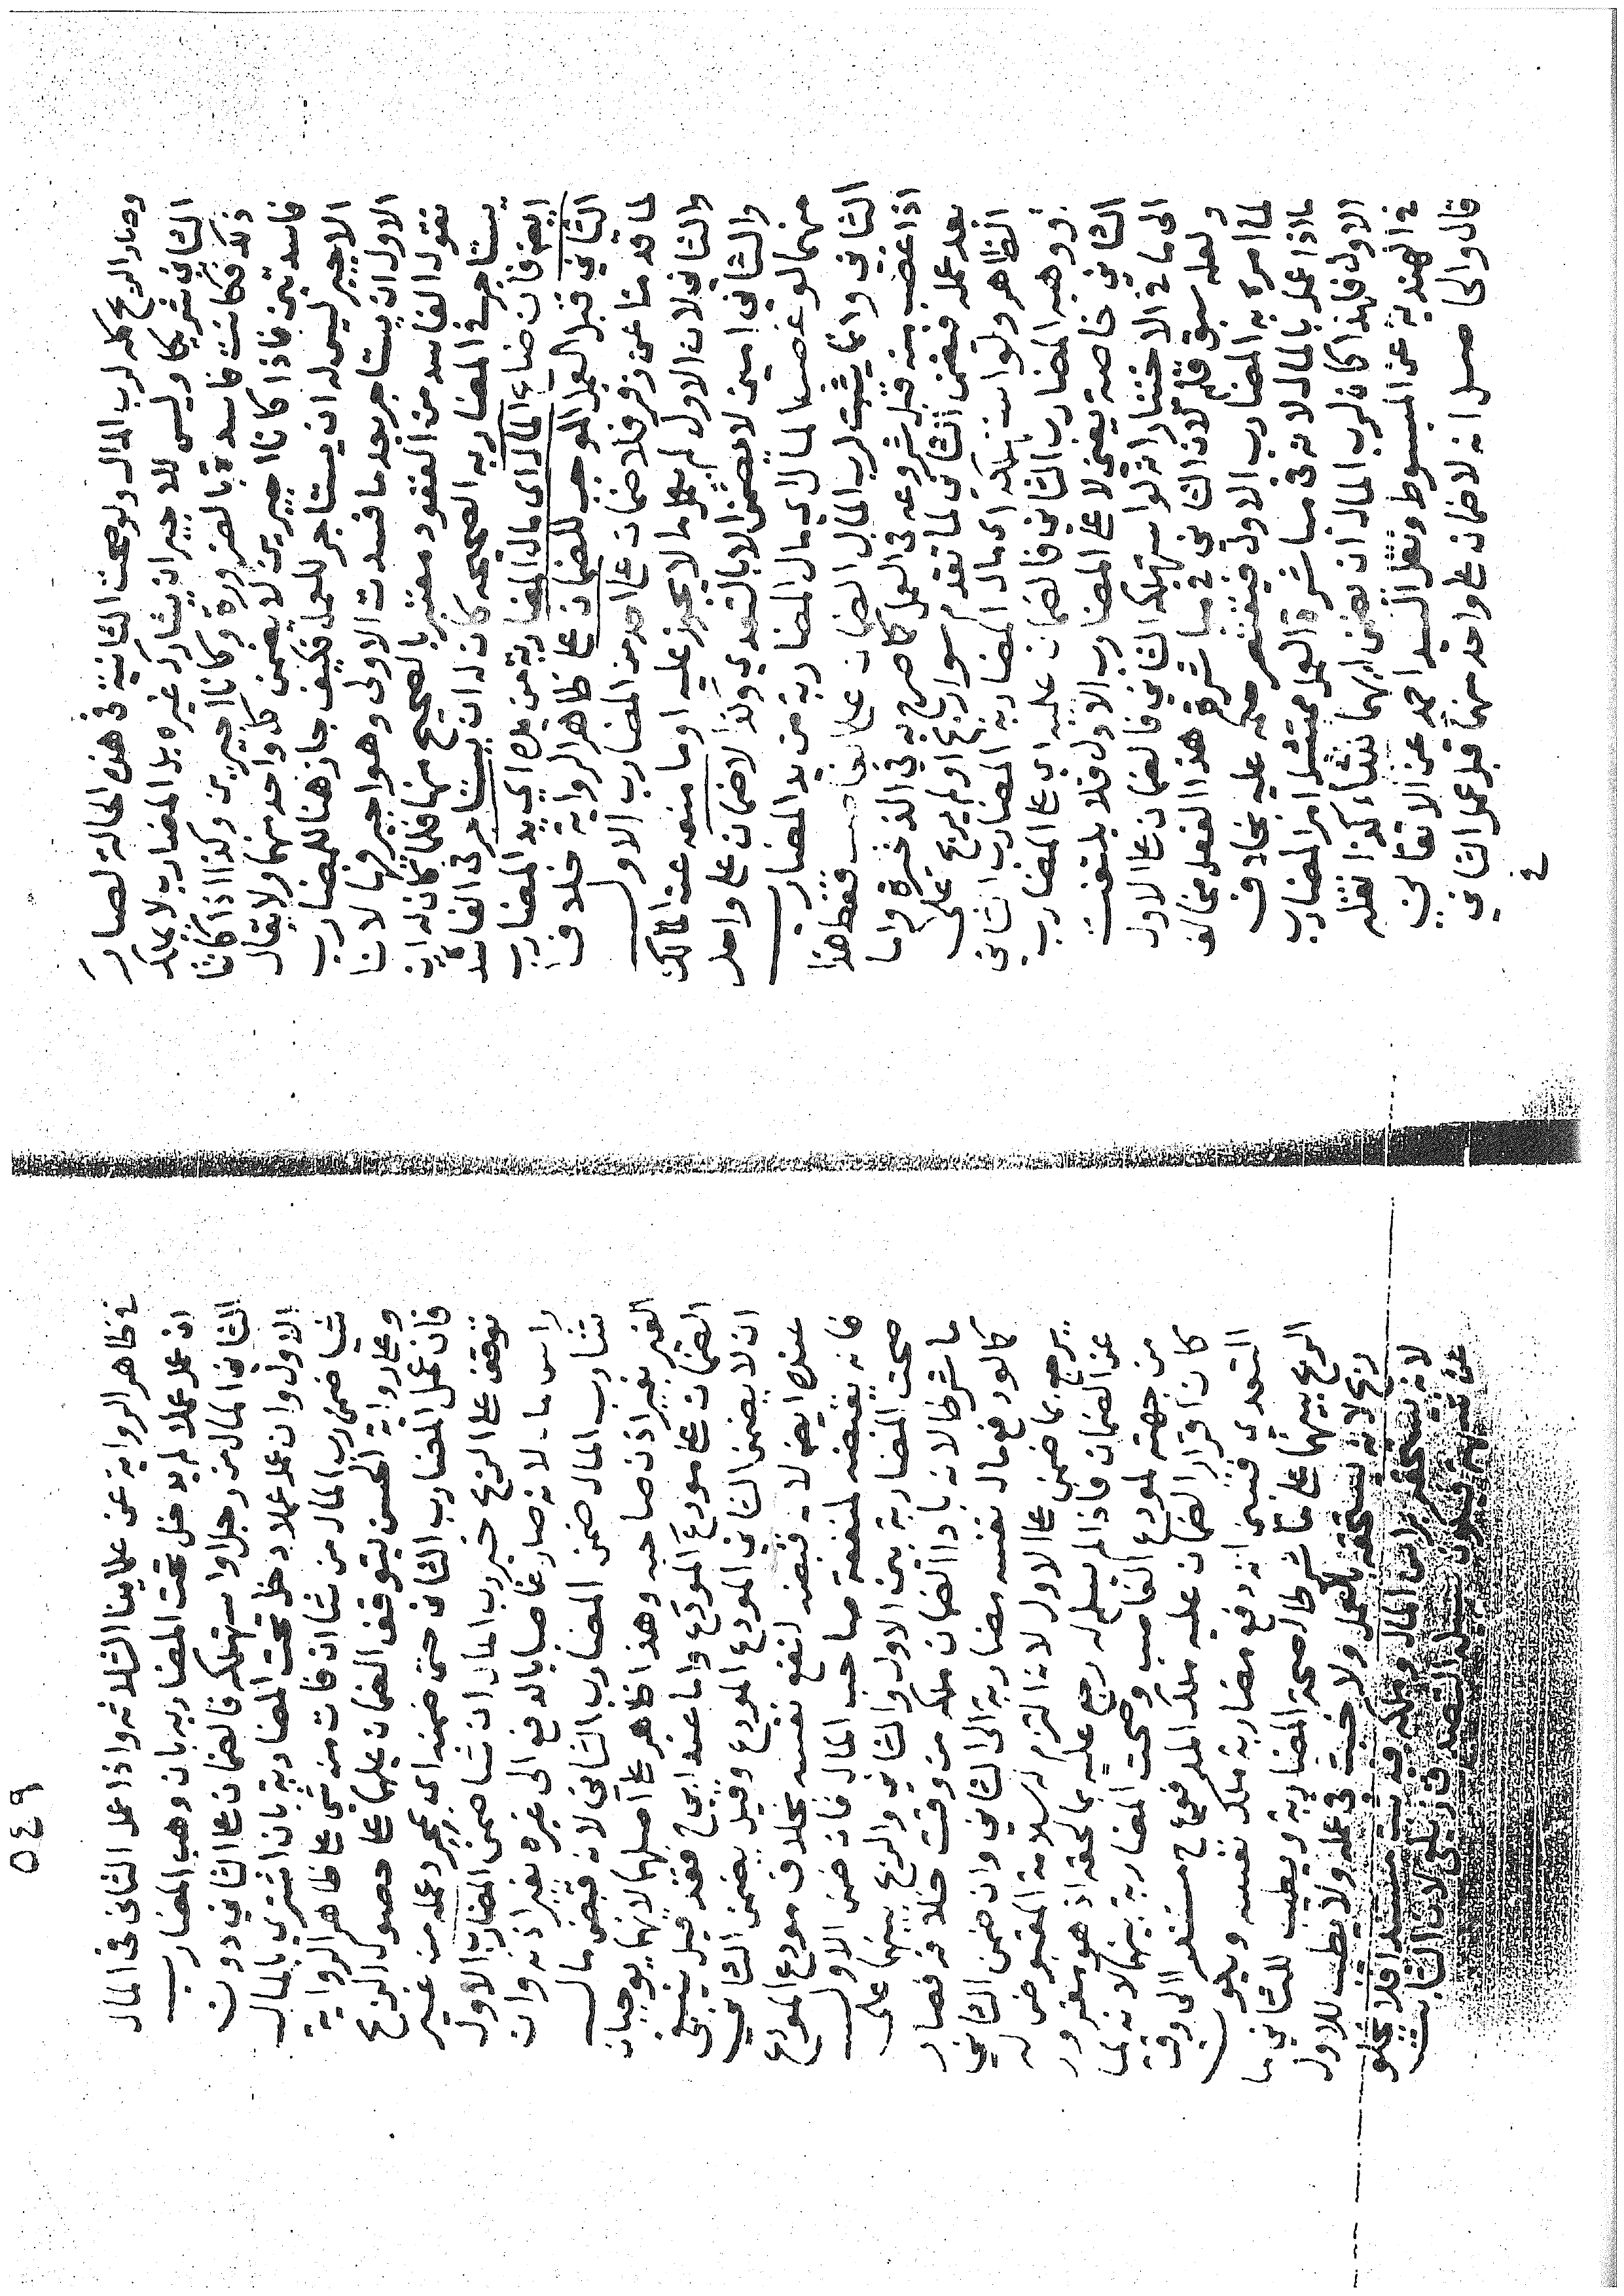 وصار الربح كله لرب المال ولو صحت الثانية في هذه الحالة لصار
الثاني شريكا وليس للاجير ان يشارك غيره بل المضارب لا يملك
ذلك فكانت فاسدة بالضرورة وكانا اجيرين وكذا اذا كانتا
فاسدتين فاذا كانا اجيرين لا يضمن كل واحد منهما ولا يقال
الاجير ليس له ان يستاجر للعمل فكيف جاز هنا للمضارب
الاول ان يستاجر بعد ما فسدت الاولى وهو اجير فيها لانا
نقول الفاسد من العقود معتبر بالصحيح منها فلما كان له ان
يستاجر في المضاربه الصحيحه كان له ان يستاجر في الفاسد
ايضا فان ضاع المال اي مال المضاربة من يده اي يد المضارب
الثاني قبل العمل الموجب للضمان على ظاهر الرواية خلافا
لما قدمنا عن زفر فلا ضمان على احد من المضارب الاول
والثاني لان الاول لم يعمل ما لا يجوز عليه او ما منعه عنه المالك
والثاني امين لا يضمن الا بالتعدي وكذا لا ضمان على واحد
منهما لو غصب المال اي مال المضاربة من يد المضارب
الثاني وانما يثبت لرب المال الضمان على الغاصب فقط هذا
اذا غصب منه قبل شروعه في العمل كما صرح به في الذخيرة واما
بعد عمله فيضمن الثاني لما تقدم سوا ربح او لم يربح على
الظاهر ولو استهلكه اي مال المضاربه المضارب الثاني
او وهبه المضارب الثاني فالضمان عليه اي على المضارب
الثاني خاصة يعني لا على المضارب الاول فلا يلتفت
الى ما في الاختيار انه لو استهلكه الثاني فالضمان على الاول
ولعله سبق قلم لان الثاني في مباشرة هذا الفعل مخالف
لما امره به المضارب الاول فيقتصر حكمه عليه بخلاف
ما اذا عمل بالمال لانه في مباشرة العمل ممتثل امر المضارب
الاول فلهذا كان لرب المال ان يضمن ايهما شاء كذا نقله
في الهنديه عن المبسوط ونقل السيد احمد عن الاتقاني
قال والحاصل انه لا ضمان على واحد منهما قبل عمل الثاني
في
٥٤٩
في ظاهر الروايه عن علماينا الثلاثه واذا عمل الثاني في المال
ان عمل عملا لم يدخل تحت المضاربه بان وهب المضارب
الثاني المال من رجل او استهلكه فالضمان على الثاني دون
الاول وان عمل عملا دخل تحت المضاربة بان اشترى بالمال
شيا ضمن رب المال من شا ان فات منه شي على ظاهر الرواية
وعلى رواية الحسن يتوقف الضمان عليهما على حصول الربح
فان عمل المضارب الثاني حتى ضمنه اي بمجرد عمله من غير
توقف على الربح خير رب المال ان شا ضمن المضارب الاول
راس ماله لانه صار غاصبا بالدفع الى غيره بغير اذنه وان
شا رب المال ضمن المضارب الثاني لانه قبض مال
الغير بغير اذن صاحبه وهذا ظاهر على اصلهما لانهما يوجبان
الضمان على مودع المودع واما عند ابي ح فقد قيل ينبغي
ان لا يضمن الثاني المودع المودع وقيل يضمن الثاني
عنده ايضا لانه قبضه لنفع نفسه بخلاف مودع المودع
فانه يقبضه لمنفعة صاحب المال فان ضمن الاول
صحت المضاربة بين الاول والثاني والربح بينهما على
ما شرطا لانه بادا الضمان ملكه من وقت خلافه فصار
كما لو دفع مال نفسه مضاربة الى الثاني وان ضمن الثاني
يرجع بما ضمن على الاول لانه التزم له سلامة المقبوض له
عن الضمان فاذا لم يسلم له رجع عليه بما لحقه اذ هو مغرور
من جهته لمودع الغاصب وصحت المضاربة بينهما لانه لما
كان قرار الضمان عليه ملك المدفوع مستندا الى وقت
التعدي فتبين انه دفع مضاربة ملك نفسه ويكون
الربح بينهما على ما شرطا لصحة المضاربة ويطيب للثاني ما
ربح لانه يستحقه بالعمل ولا خبث في عمله ولا يطيب للاول
لانه يستحقه براس المال وملكه فيه ثبت مستندا فلا يخلو
عن شبهة فيكون سبيله التصدق زيلعي لان الثابت